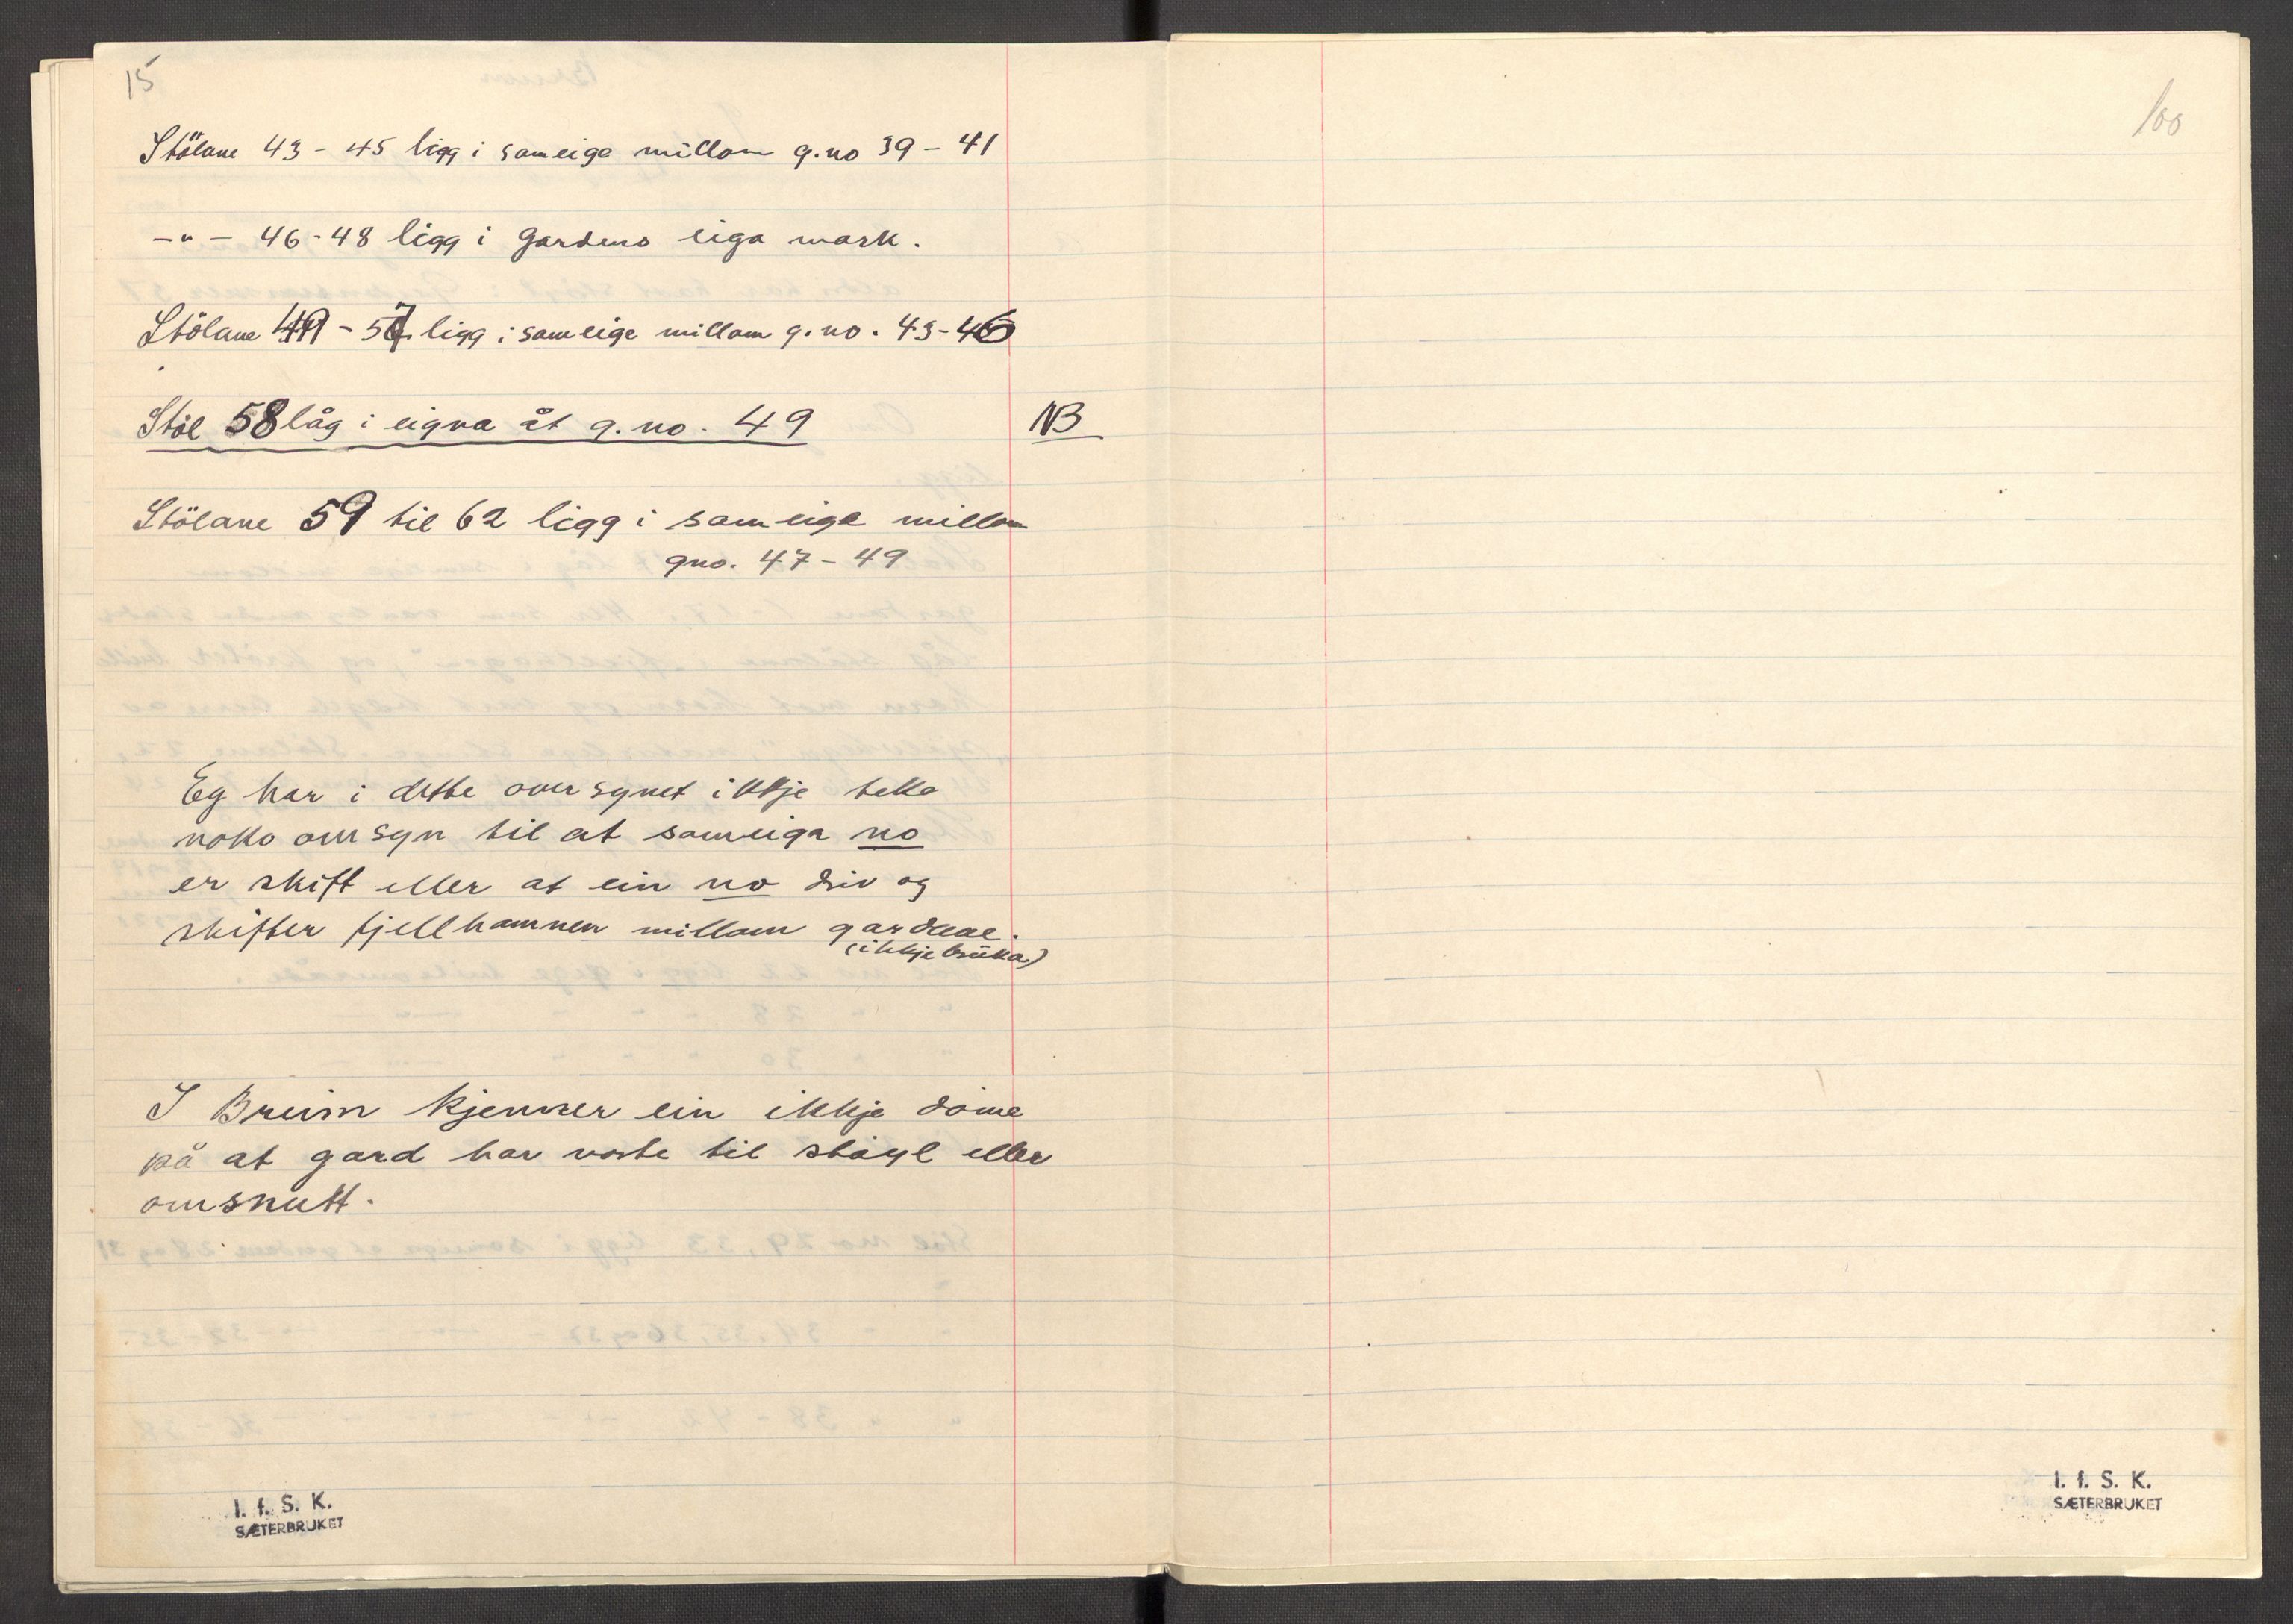 15
Stölane 43 - 45 ligg i sameige millom g.no 39 - 41
-"- 46-48 ligg i gardens eiga mark.
Stölane 49 - 57 ligg i sameige millom g.no. 43-46
Stöl 58 låg i eigna åt g.no. 49 NB
Stölane 59 til 62 ligg i sameige millom
gno. 47 - 49
Eg har i dette oversynet ikkje teke
noko omsyn til at sameiga no
er skift eller at ein no driv og
skifter fjellhamnen millom gardane.
(ikkje bruka)
I Breim kjenner ein ikkje döme
på at gard har vorte til støyl eller
omsnutt.
I. f. S. K.
SÆTERBRUKET
100
I. f. S. K.
SÆTERBRUKET